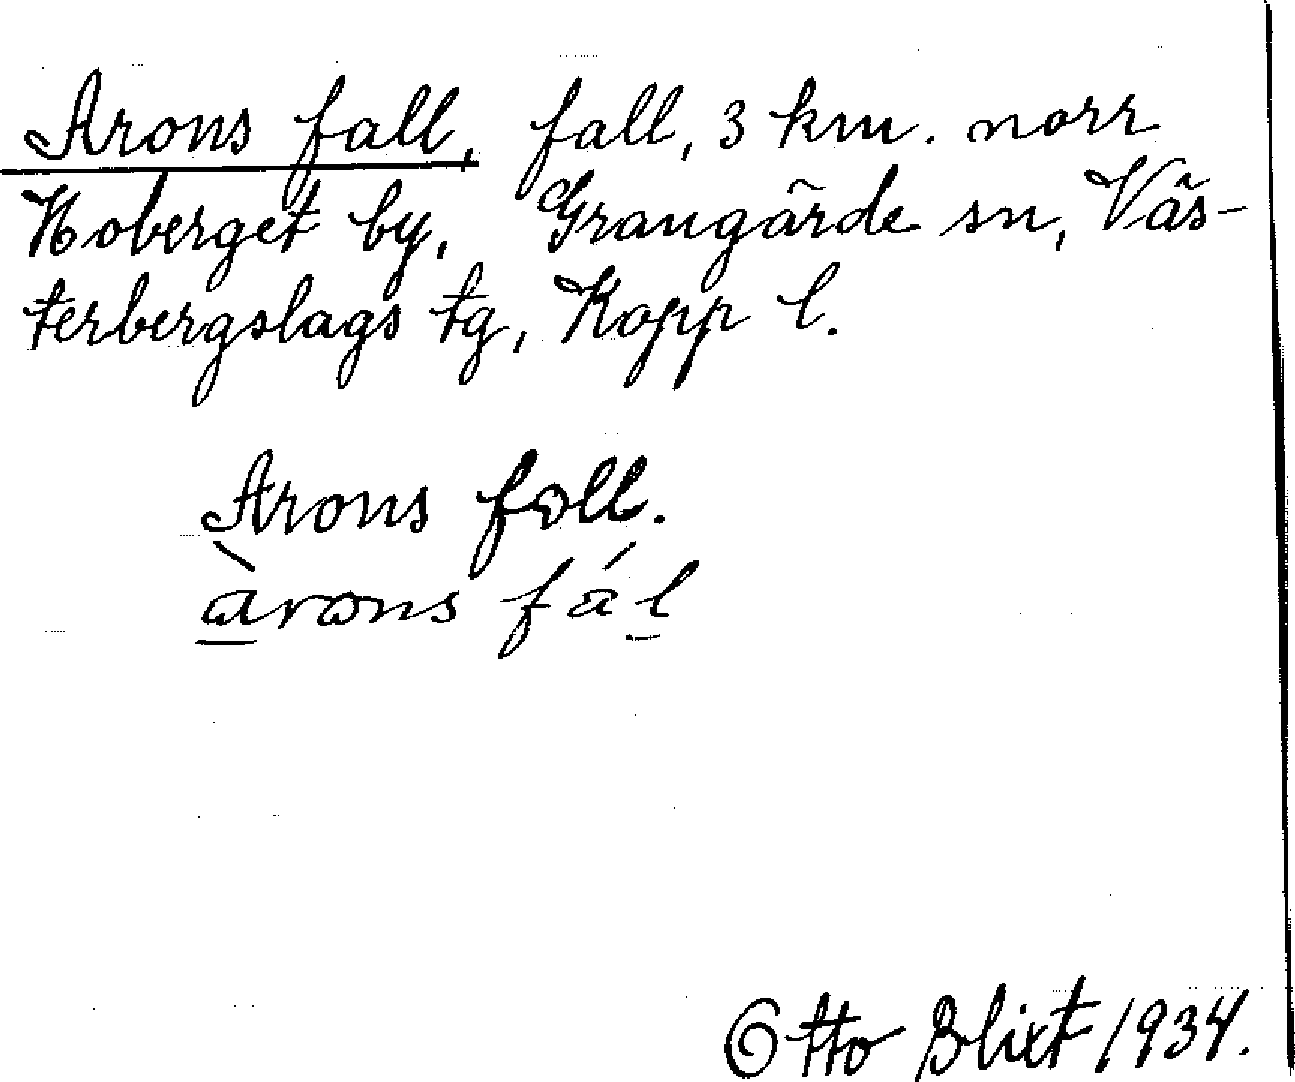 Arons fall, fall, 3 km. norr
Hoberget by, Grangärde sn, Väs-
terbergslags tg, Kopp l.
Arons fall.
àrons fál
Otto Blixt 1934.